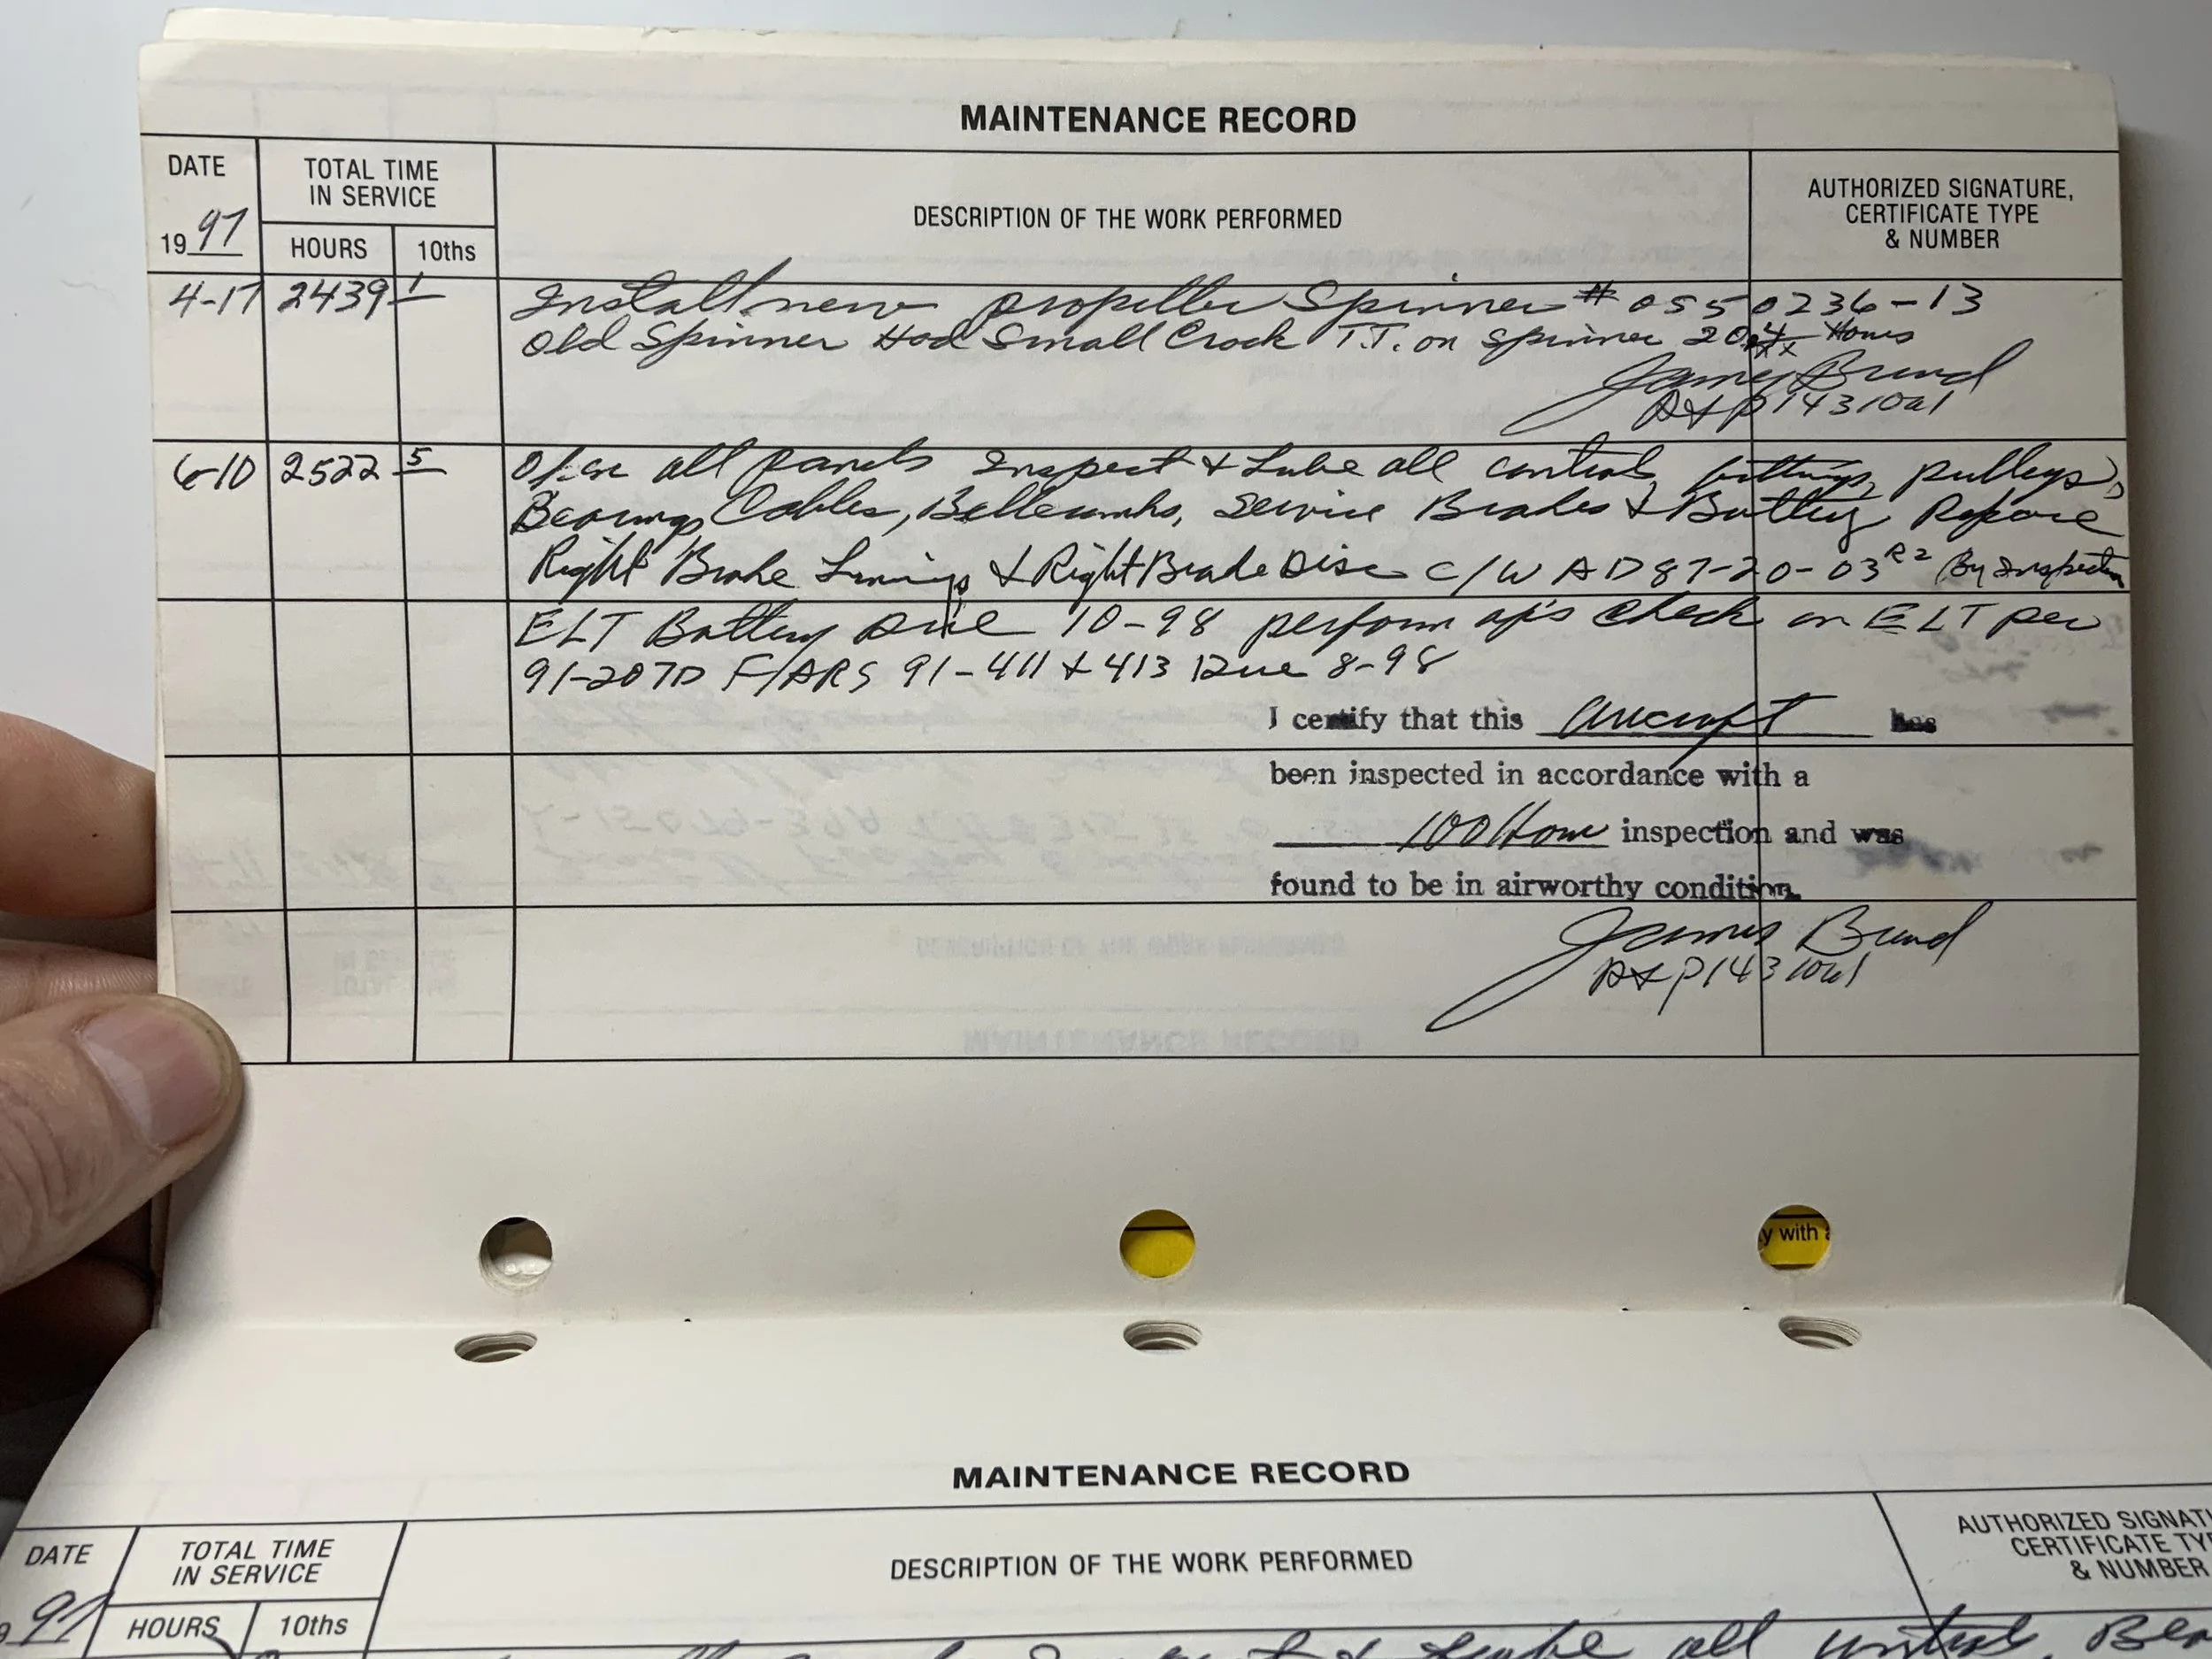 MAINTENANCE RECORD
DATE
TOTAL TIME
IN SERVICE
DESCRIPTION OF THE WORK PERFORMED
AUTHORIZED SIGNATURE,
CERTIFICATE TYPE
& NUMBER
1997
HOURS
10ths
4-17 2439 1 Install new propeller Spinner # 0550236-13
Old Spinner Had Small Crack T.T. on Spinner 20.4 Hours
James
A&P 1431061
6-10 2522 5 Open all panels Inspect & Lube all controls, fittings, pulleys,
Bearings, Cables, Bellcranks, Service Brakes & Battery
Right Brake Linings & Right Brake Disc C/W AD 87-20-03 R2 (By Inspection
ELT Battery Due 10-98 perform ops check on ELT per
91-207D FARS 91-411 & 413 Due 8-98
I certify that this aircraft has
been inspected in accordance with a
100 Hour inspection and was
found to be in airworthy condition.
James
A&P 1431061
y with
MAINTENANCE RECORD
DATE
TOTAL TIME
IN SERVICE
DESCRIPTION OF THE WORK PERFORMED
AUTHORIZED
CERTIFICATE
& NUMBER
97
HOURS
10ths
Lube all controls,